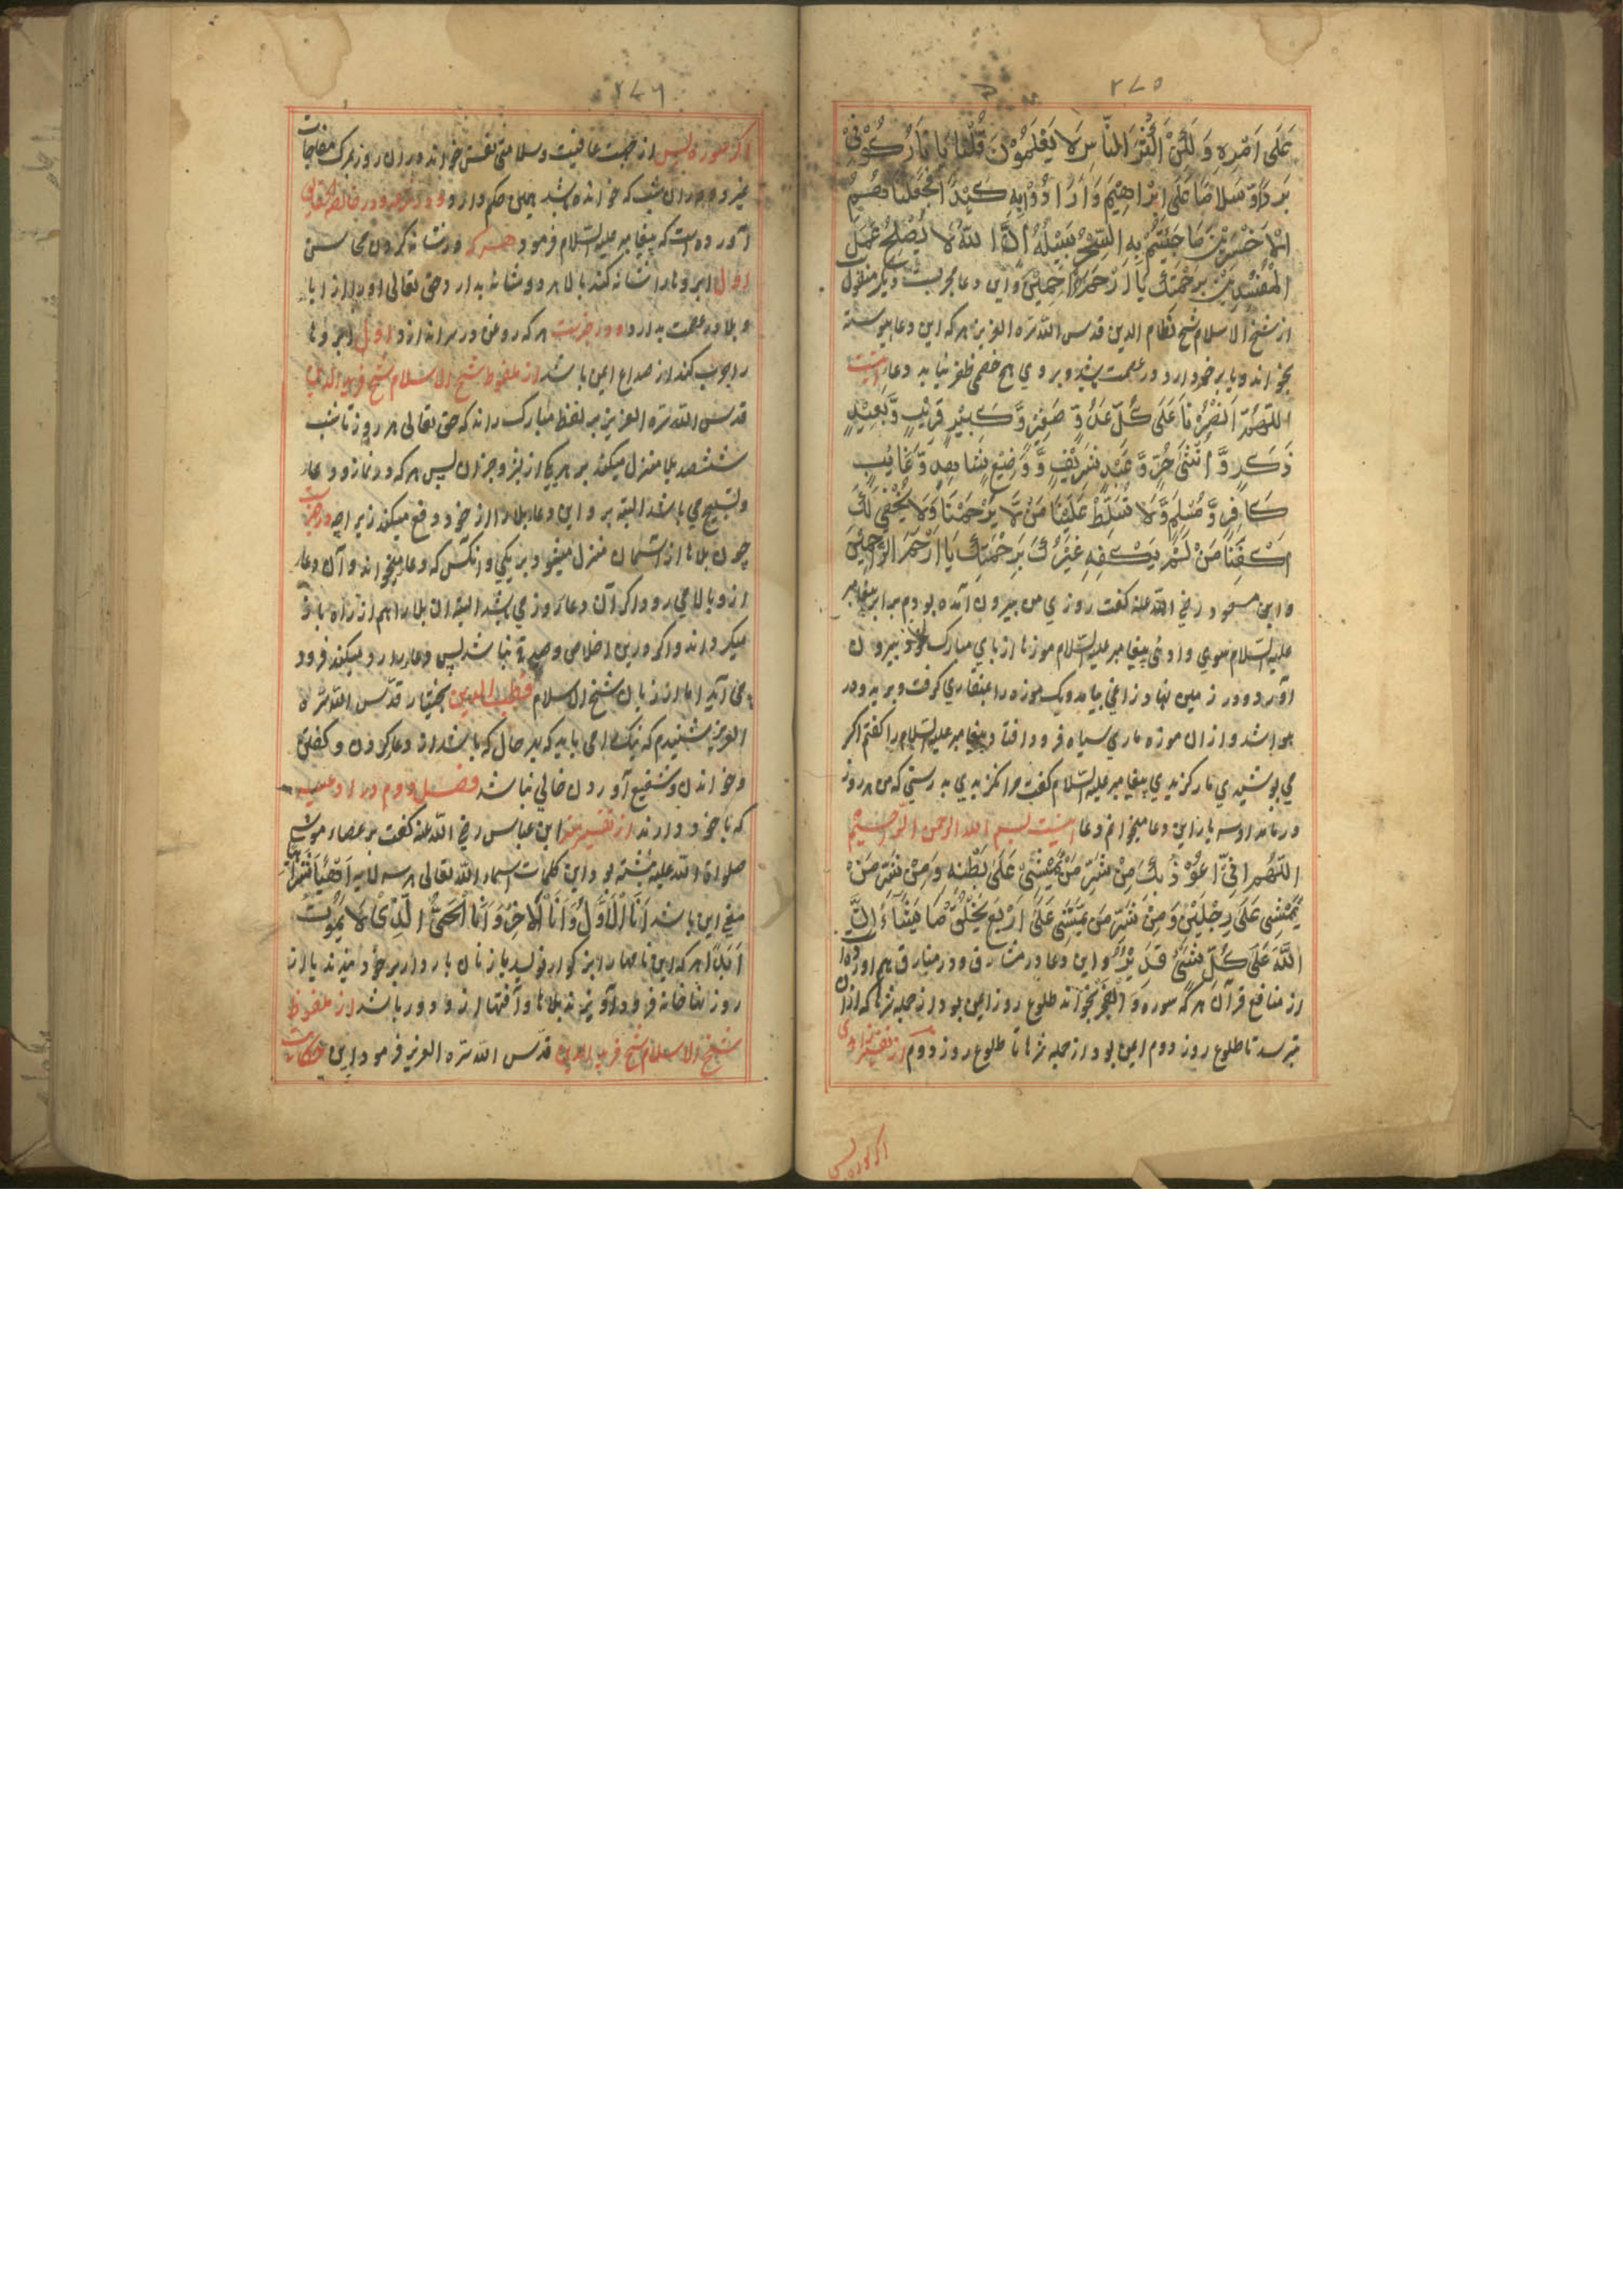 ٢٧٥
عَلَى اَمْرِهِ وَلٰكِنَّ اَكْثَرَ النَّاسِ لَا يَعْلَمُوْنَ قُلْنَا يَا نَارُ كُوْنِيْ
بَرْدًا وَّ سَلَامًا عَلَى اِبْرَاهِيْمَ وَاَرَادُوْا بِهِ كَيْدًا فَجَعَلْنَاهُمُ
الْاَخْسَرِيْنَ مَا جِئْتُمْ بِهِ السِّحْرُ سَيُبْطِلُهُ اِنَّ اللهَ لَا يُصْلِحُ عَمَلَ
الْمُفْسِدِيْنَ بِرَحْمَتِكَ يَا اَرْحَمَ الرَّاحِمِيْنَ و این دعا مجربست دیگر منقول
از شیخ الاسلام شیخ نظام الدین قدس الله سره العزیز هر که این دعا پیوسته
بخواند و یا بر خود دارد در عصمت باشد و بروی هیچ خصمی ظفر نیابد دعا اینست
اللّٰهُمَّ انْصُرْنَا عَلَى كُلِّ عَدُوٍّ صَغِيْرٍ وَّ كَبِيْرٍ قَرِيْبٍ وَّ بَعِيْدٍ
ذَكَرٍ وَّ اُنْثٰى حُرٍّ وَّ عَبْدٍ شَرِيْفٍ وَّ وَضِيْعٍ شَاهِدٍ وَّ غَائِبٍ
كَافِرٍ وَّ مُسْلِمٍ وَّلَا تُسَلِّطْ عَلَيْنَا مَنْ لَّا يَرْحَمْنَا وَلَا يَخْفٰى لَكَ
اِكْفِنَا مَنْ لَمْ يَكْفِهِ غَيْرُكَ بِرَحْمَتِكَ يَا اَرْحَمَ الرَّاحِمِيْنَ
و ابن مسعود رضی الله عنه گفت روزی من بیرون آمده بودم برابر پیغامبر
علیه السلام پیغامبر علیه السلام موزها از پای مبارک خود بیرون
آورد و در زمین نهاد زاغی بیامد و یک موزه را بمنقار گرفت و بپرید و در
هوا شد و از ان موزه ماری سیاه فرود افتاد پیغامبر علیه السلام را گفتم اگر
می پوشیدی مار گزیدی پیغامبر علیه السلام گفت مرا نگزیدی به رستی که من هر روز
در بامداد سه بار این دعا میخوانم دعا اینست بسم الله الرحمن الرحیم
اللّٰهُمَّ اِنِّيْ اَعُوْذُ بِكَ مِنْ شَرِّ مَنْ يَّمْشِيْ عَلَى بَطْنِهِ وَمِنْ شَرِّ مَنْ
يَّمْشِيْ عَلَى رِجْلَيْنِ وَ مِنْ شَرِّ مَنْ يَّمْشِيْ عَلَى اَرْبَعٍ يَخْلُقُ مَا يَشَاءُ اِنَّ
اللّٰهَ عَلَى كُلِّ شَيْءٍ قَدِيْرٌ و این دعا در مشارق هم آورده
از منافع قرآن هر که سوره و الفجر بخواند طلوع روز ایمن بود از جمله شرها که از ان
بترسد تا طلوع روز دوم ایمن بود از جمله شرها تا طلوع روز دوم از تفسیر زاهدی
اگر سوره یس
٢٧٦
اگر سوره یس از جهت عافیت و سلامتی نفس خواند در ان روز بمرگ مفاجات
نمیرد و در ان شب که خوانده باشد همین حکم دارد و در
آورده است که پیغامبر علیه السلام فرمود هر که در شانه کردن محاسن
اول ابروها را شانه کند بالا هر دو شانه بدارد حق تعالی او را از وبا
و بلا در عصمت بدارد و در خبرست هر که روغن در سر اندازد اول ابروها
را چرب کند از صداع ایمن باشد از ملفوظ شیخ الاسلام شیخ فرید الدین
قدس الله سره العزیز بر لفظ مبارک راند که حق تعالی هر روز تا شب
ششصد بلا منزل میکند بر هر یکی از بشر و جز ان پس هر که در نماز و دعا
و تسبیح می باشد البته بر و این دعا بلا را از خود دفع میکند زیراچه در خبرست
چون بلاها از آسمان منزل میشود بر یکی و آنکس که دعا میخواند و آن دعا
از و بالا می رود اگر آن دعا از روزی باشد البته ان بلا را هم از راه باز
میگرداند و اگر درین اخلاص و صدق نباشد پس دعا را رد میکند فرود
می آید اما از زبان شیخ الاسلام قطب الدین بختیار قدس الله سره
العزیز شنیدم که نیک می باید که بهر حال که باشد از دعا کردن و گفتن
و خواندن و شفیع آوردن خالی نباشد فصل دوم در ادعیه
که با خود دارند از تفسیر ابن عباس رضی الله عنه گفت بر عصاء موسی
صلواة الله علیه نبشته بود این کلمات اسماء الله تعالی
معنی این باشد اَنَا الْاَوَّلُ وَ اَنَا الْاٰخِرُ وَ اَنَا الْحَيُّ الَّذِيْ لَا يَمُوْتُ
اَبَدًا هر که این نامهاء بزرگوار بنویسد یا زنان باردار بر خود بندند یا از
روزنها خانه فرود آویزند بلاها و آفتها ازو دور باشد از ملفوظ
شیخ الاسلام شیخ فرید الدین قدس الله سره العزیز فرمود این حکایت